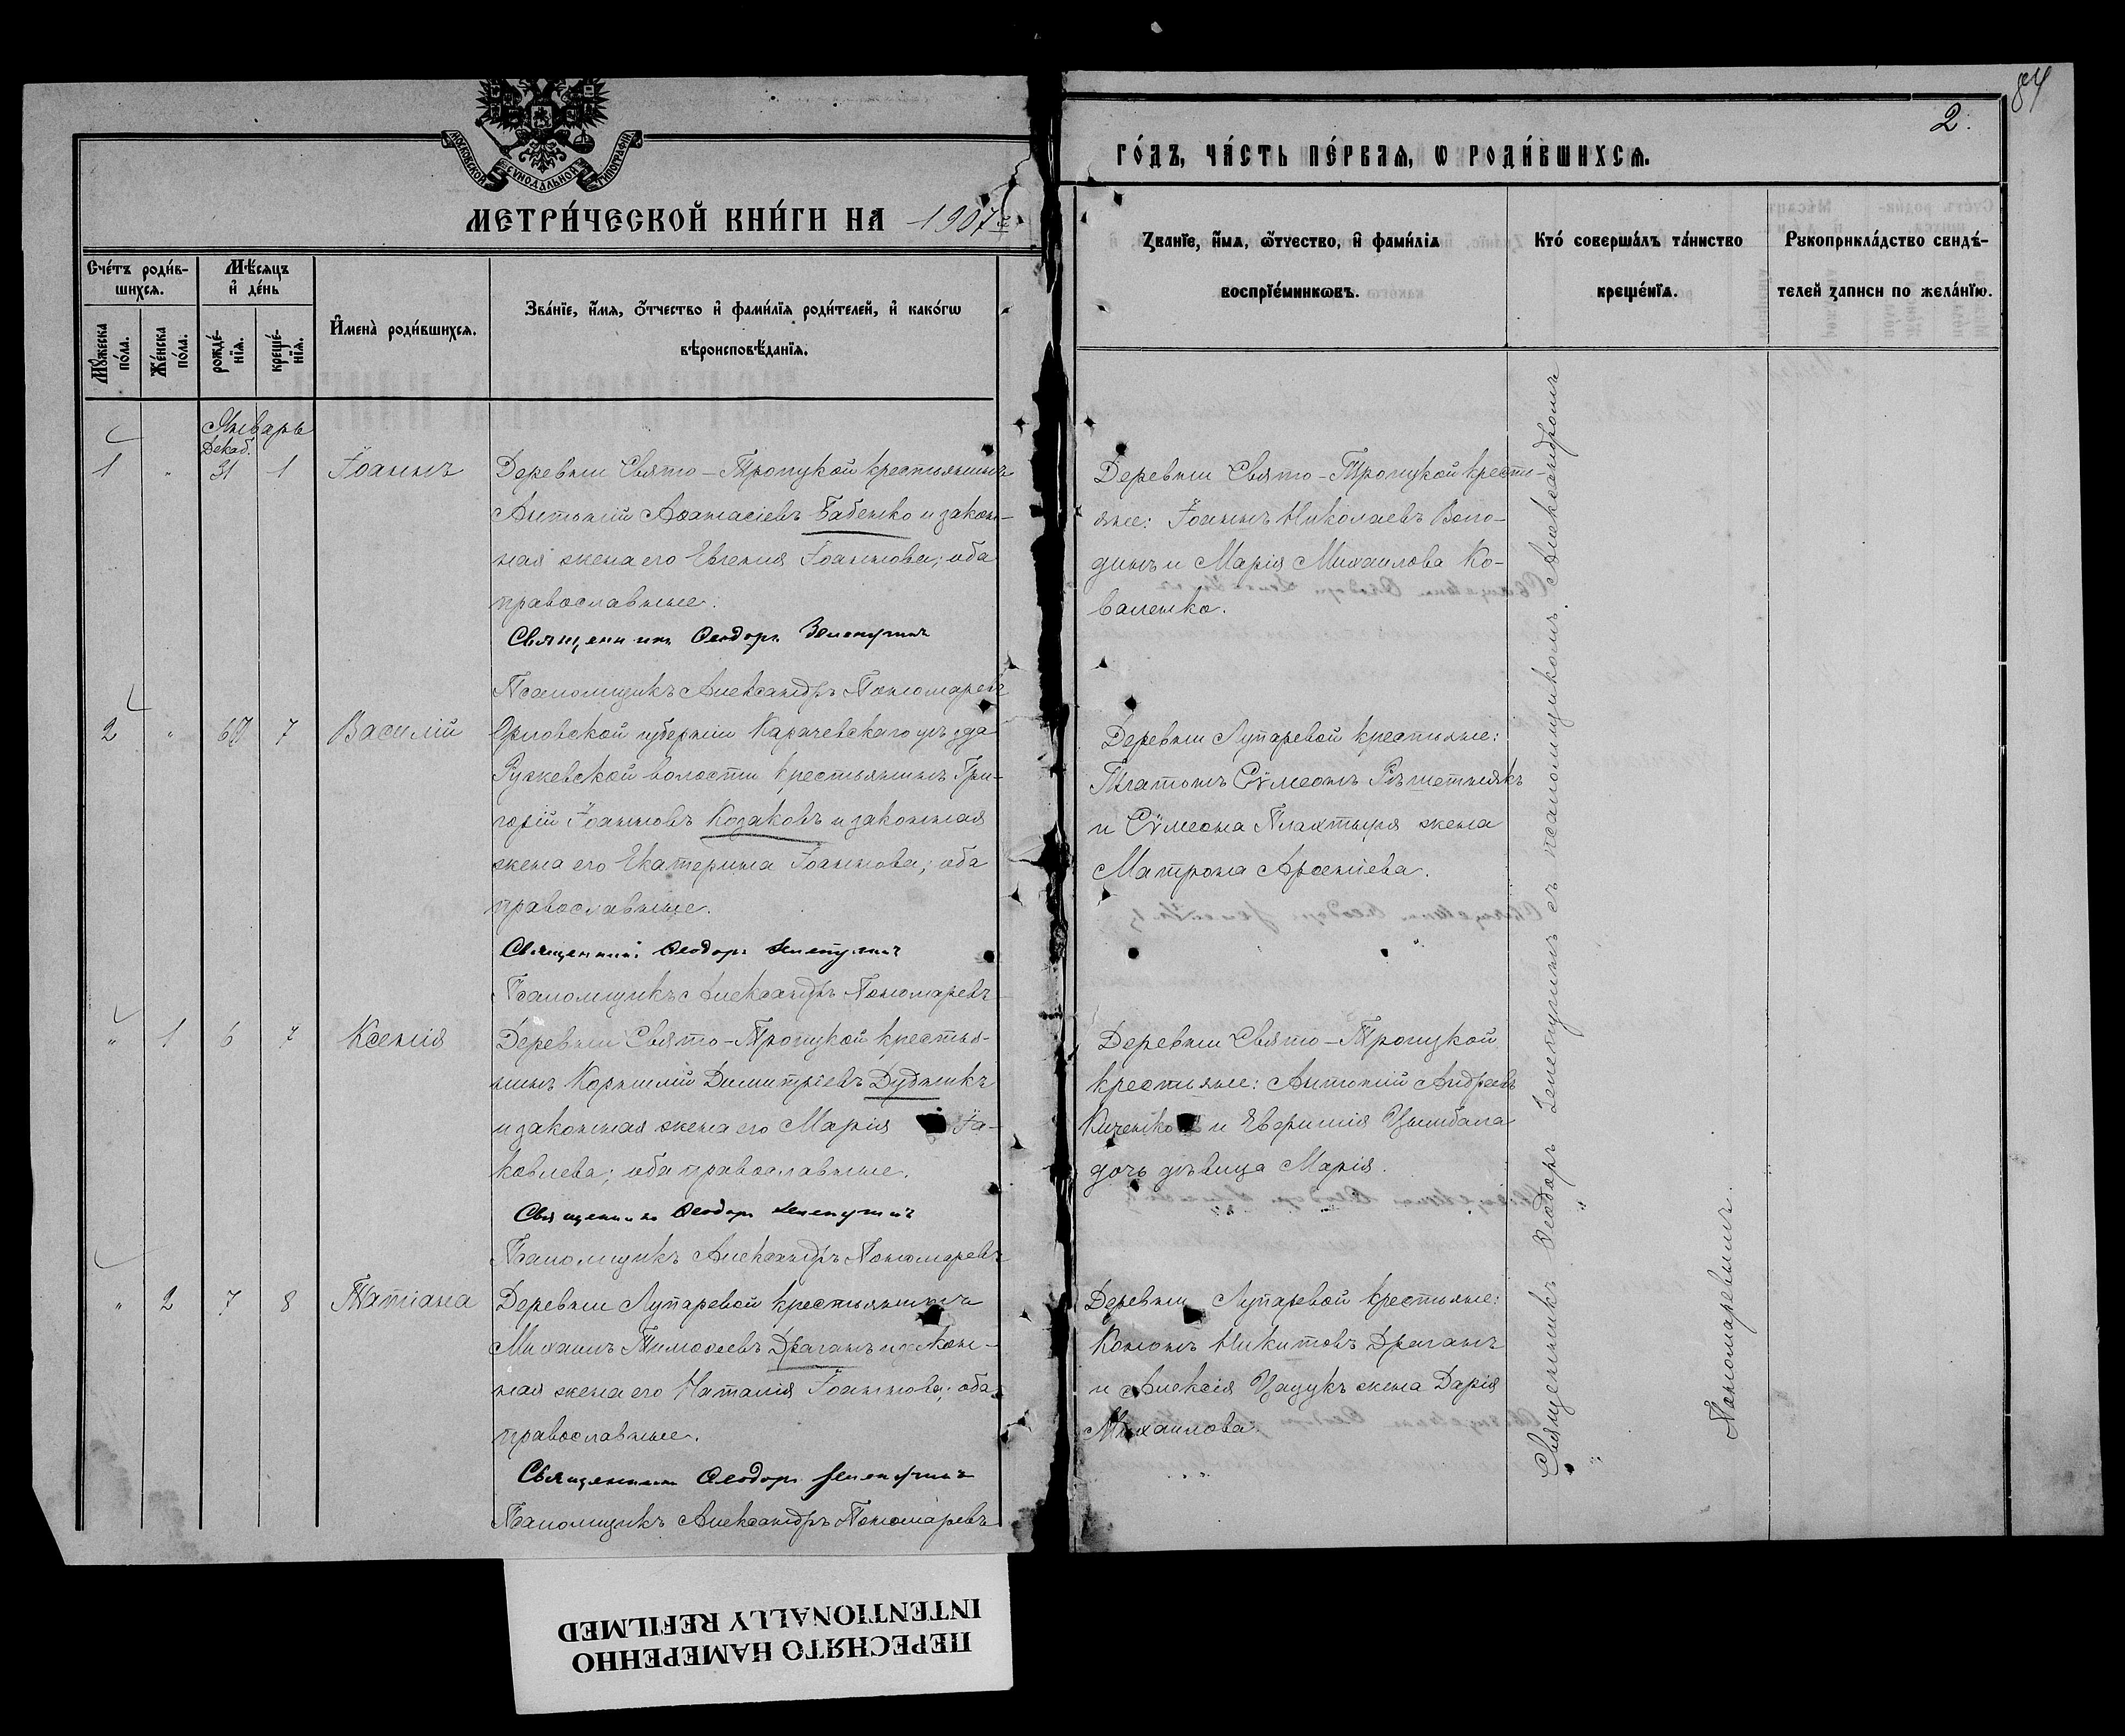 84
2.
МОСКОВСКОЙ СѴНОДАЛЬНОЙ ТИПОГРАФІИ
МЕТРИ́ЧЕСКОЙ КНИ́ГИ НА 1907 г.
ГО́ДЪ, ЧА́СТЬ ПЕ́РВАѦ, Ѡ РОДИ́ВШИХСѦ.
Сче́тъ роди́в-
шихсѧ.
Мѣ́сѧцъ
и҆ де́нь
Мꙋ́жеска
по́ла.
Же́нска
по́ла.
рожде́-
нїѧ.
креще́-
нїѧ.
И҆мена̀ роди́вшихсѧ.
Зва́нїе, и҆́мѧ, ѻ҆́тчество и҆ фами́лїѧ роди́телей, и҆ како́гѡ
вѣроисповѣ́данїѧ.
Зва́нїе, и҆́мѧ, ѻ҆́тчество, и҆ фами́лїѧ
воспрїе́мникѡвъ.
Кто́ соверша́лъ та́инство
креще́нїѧ.
Рꙋкоприкла́дство свидѣ́-
телей записи по жела́нїю.
Январь
Декаб.
1 " 31 1 Іоаннъ
Деревни Свято-Троицкой крестьянинъ
Антоній Аѳанасіевъ Бабенко и закон-
ная жена его Евгенія Іоаннова; оба
православные.
Священникъ Ѳеодоръ Зелепугинъ
Псаломщикъ Александръ Пономаревъ
Деревни Свято-Троицкой кресть-
яне: Іоаннъ Николаевъ Воло-
динъ и Марія Михаилова Ко-
валенко.
2 " 6 7 Василій
Орловской губерніи Карачевскаго уѣзда
волости крестьянинъ Гри-
горій Іоанновъ Козаковъ и законная
жена его Екатерина Іоаннова; оба
православные.
Священникъ Ѳеодоръ Зелепугинъ
Псаломщикъ Александръ Пономаревъ
Деревни Лупаревой крестьяне:
Платонъ Сѵмеонъ Рѣшетнякъ
и Сѵмеона Плахтыря жена
Матрона Арсеніева.
" 1 6 7 Ксенія
Деревни Свято-Троицкой крестья-
нинъ Корнилій Димитріевъ Дудникъ
и законная жена его Марія Іа-
ковлева; оба православные.
Священникъ Ѳеодоръ Зелепугинъ
Псаломщикъ Александръ Пономаревъ
Деревни Свято-Троицкой
крестьяне: Антоній Андреевъ
и Евфимія Цымбала
дочь дѣвица Марія.
" 2 7 8 Татіана
Деревни Лупаревой крестьянинъ
Михаилъ Тимоѳеевъ Драганъ и закон-
ная жена его Наталія Іоаннова; оба
православные.
Священникъ Ѳеодоръ Зелепугинъ
Псаломщикъ Александръ Пономаревъ
Деревни Лупаревой крестьяне:
Кононъ Никитовъ Драганъ
и Алексія Цацукъ жена Дарія
Михаилова.
Священникъ Ѳеодоръ Зелепугинъ съ псаломщикомъ Александромъ
Пономаревымъ.
ПЕРЕСНЯТО НАМЕРЕННО
INTENTIONALLY REFILMED